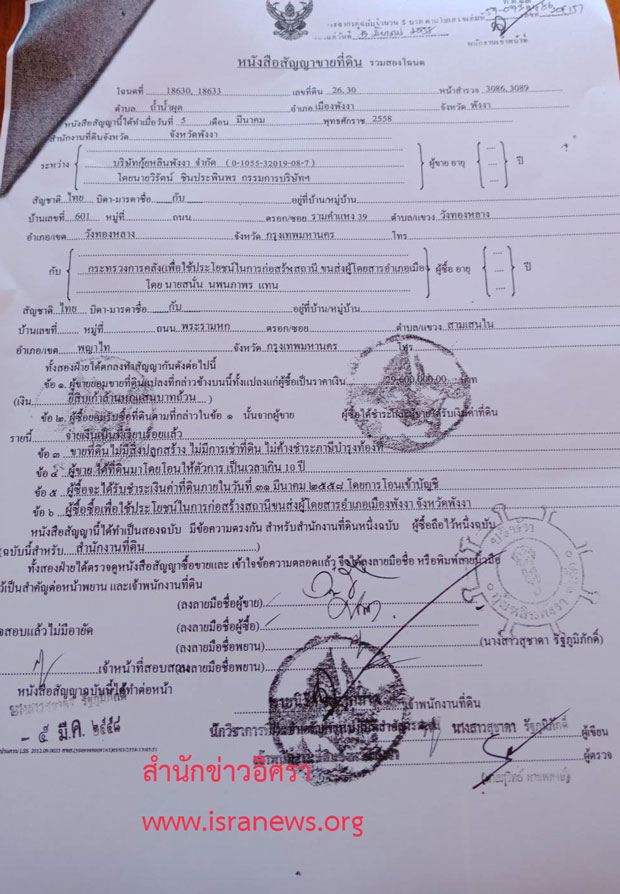 หนังสือสัญญาขายที่ดิน รวมสองโฉนด
โฉนดที่ 18630, 18633 เลขที่ดิน 26,30 หน้าสำรวจ 3086,3089
ตำบล ถ้ำน้ำผุด อำเภอ เมืองพังงา จังหวัด พังงา
หนังสือสัญญานี้ได้ทำเมื่อวันที่ 5 เดือน มีนาคม พุทธศักราช 2558
สำนักงานที่ดินจังหวัด จังหวัดพังงา
บริษัทกุ้ยหลินพังงา จำกัด ( 0-1055-32019-08-7 )
ระหว่าง ผู้ขาย อายุ ปี
โดยนายวิรัตน์ ชินประพินพร กรรมการบริษัทฯ
สัญชาติ ไทย บิดา-มารดาชื่อ กับ อยู่ที่บ้าน/หมู่บ้าน
บ้านเลขที่ 601 หมู่ที่ ถนน ตรอก/ซอย รามคำแหง 39 ตำบล/แขวง วังทองหลาง
อำเภอ/เขต วังทองหลาง จังหวัด กรุงเทพมหานคร โทร
กับ กระทรวงการคลัง(เพื่อใช้ประโยชน์ในการก่อสร้างสถานี ขนส่งผู้โดยสารอำเภอเมือ ผู้ซื้อ อายุ ปี
โดย นายสนั่น นพนภาพร แทน
สัญชาติ ไทย บิดา-มารดาชื่อ กับ อยู่ที่บ้าน/หมู่บ้าน
บ้านเลขที่ หมู่ที่ ถนน พระรามหก ตรอก/ซอย ตำบล/แขวง สามเสนใน
อำเภอ/เขต พญาไท จังหวัด กรุงเทพมหานคร โทร
ทั้งสองฝ่ายได้ตกลงทำสัญญากันดังต่อไปนี้
ข้อ ๑. ผู้ขายยอมขายที่ดินแปลงที่กล่าวข้างบนนี้ทั้งแปลงแก่ผู้ซื้อเป็นราคาเงิน 29,600,000.00 บาท
(เงิน ยี่สิบเก้าล้านหกแสนบาทถ้วน )
ข้อ ๒. ผู้ซื้อยอมรับซื้อที่ดินตามที่กล่าวในข้อ ๑ นั้นจากผู้ขาย ผู้ซื้อได้ชำระและผู้ขายได้รับเงินค่าที่ดิน
รายนี้
ข้อ ๓ ขายที่ดินไม่มีสิ่งปลูกสร้าง ไม่มีการเช่าที่ดิน ไม่ค้างชำระภาษีบำรุงท้องที่
ข้อ ๔ ผู้ขาย ได้ที่ดินมาโดยโอนให้ตัวการ เป็นเวลาเกิน 10 ปี
ข้อ ๕ ผู้ซื้อจะได้รับชำระเงินค่าที่ดินภายในวันที่ ๓๑ มีนาคม ๒๕๕๘ โดยการโอนเข้าบัญชี
ข้อ ๖ ผู้ซื้อซื้อเพื่อใช้ประโยชน์ในการก่อสร้างสถานีขนส่งผู้โดยสารอำเภอเมืองพังงา จังหวัดพังงา
หนังสือสัญญานี้ได้ทำเป็นสองฉบับ มีข้อความตรงกัน สำหรับสำนักงานที่ดินหนึ่งฉบับ ผู้ซื้อถือไว้หนึ่งฉบับ
(ฉบับนี้สำหรับ สำนักงานที่ดิน )
ทั้งสองฝ่ายได้ตรวจดูหนังสือสัญญาซื้อขายและ เข้าใจข้อความตลอดแล้ว จึงได้ลงลายมือชื่อ หรือพิมพ์ลายนิ้วมือ
ว้เป็นสำคัญต่อหน้าพยาน และเจ้าพนักงานที่ดิน
(ลงลายมือชื่อผู้ขาย)
จสอบแล้วไม่มีอายัด (ลงลายมือชื่อผู้ซื้อ)
(ลงลายมือชื่อพยาน) (นางสาวสุชาดา รัฐภูมิภักดิ์)
เจ้าหน้าที่สอบสวน (ลงลายมือชื่อพยาน)
หนังสือสัญญาฉบับนี้ได้ทำต่อหน้า
เจ้าพนักงานที่ดิน
นางสาวสุชาดา รัฐภูมิภักดิ์ ผู้เขียน
- ๕ มี.ค. ๒๕๕๘
ผู้ตรวจ
สำนักข่าวอิศรา
www.isranews.org